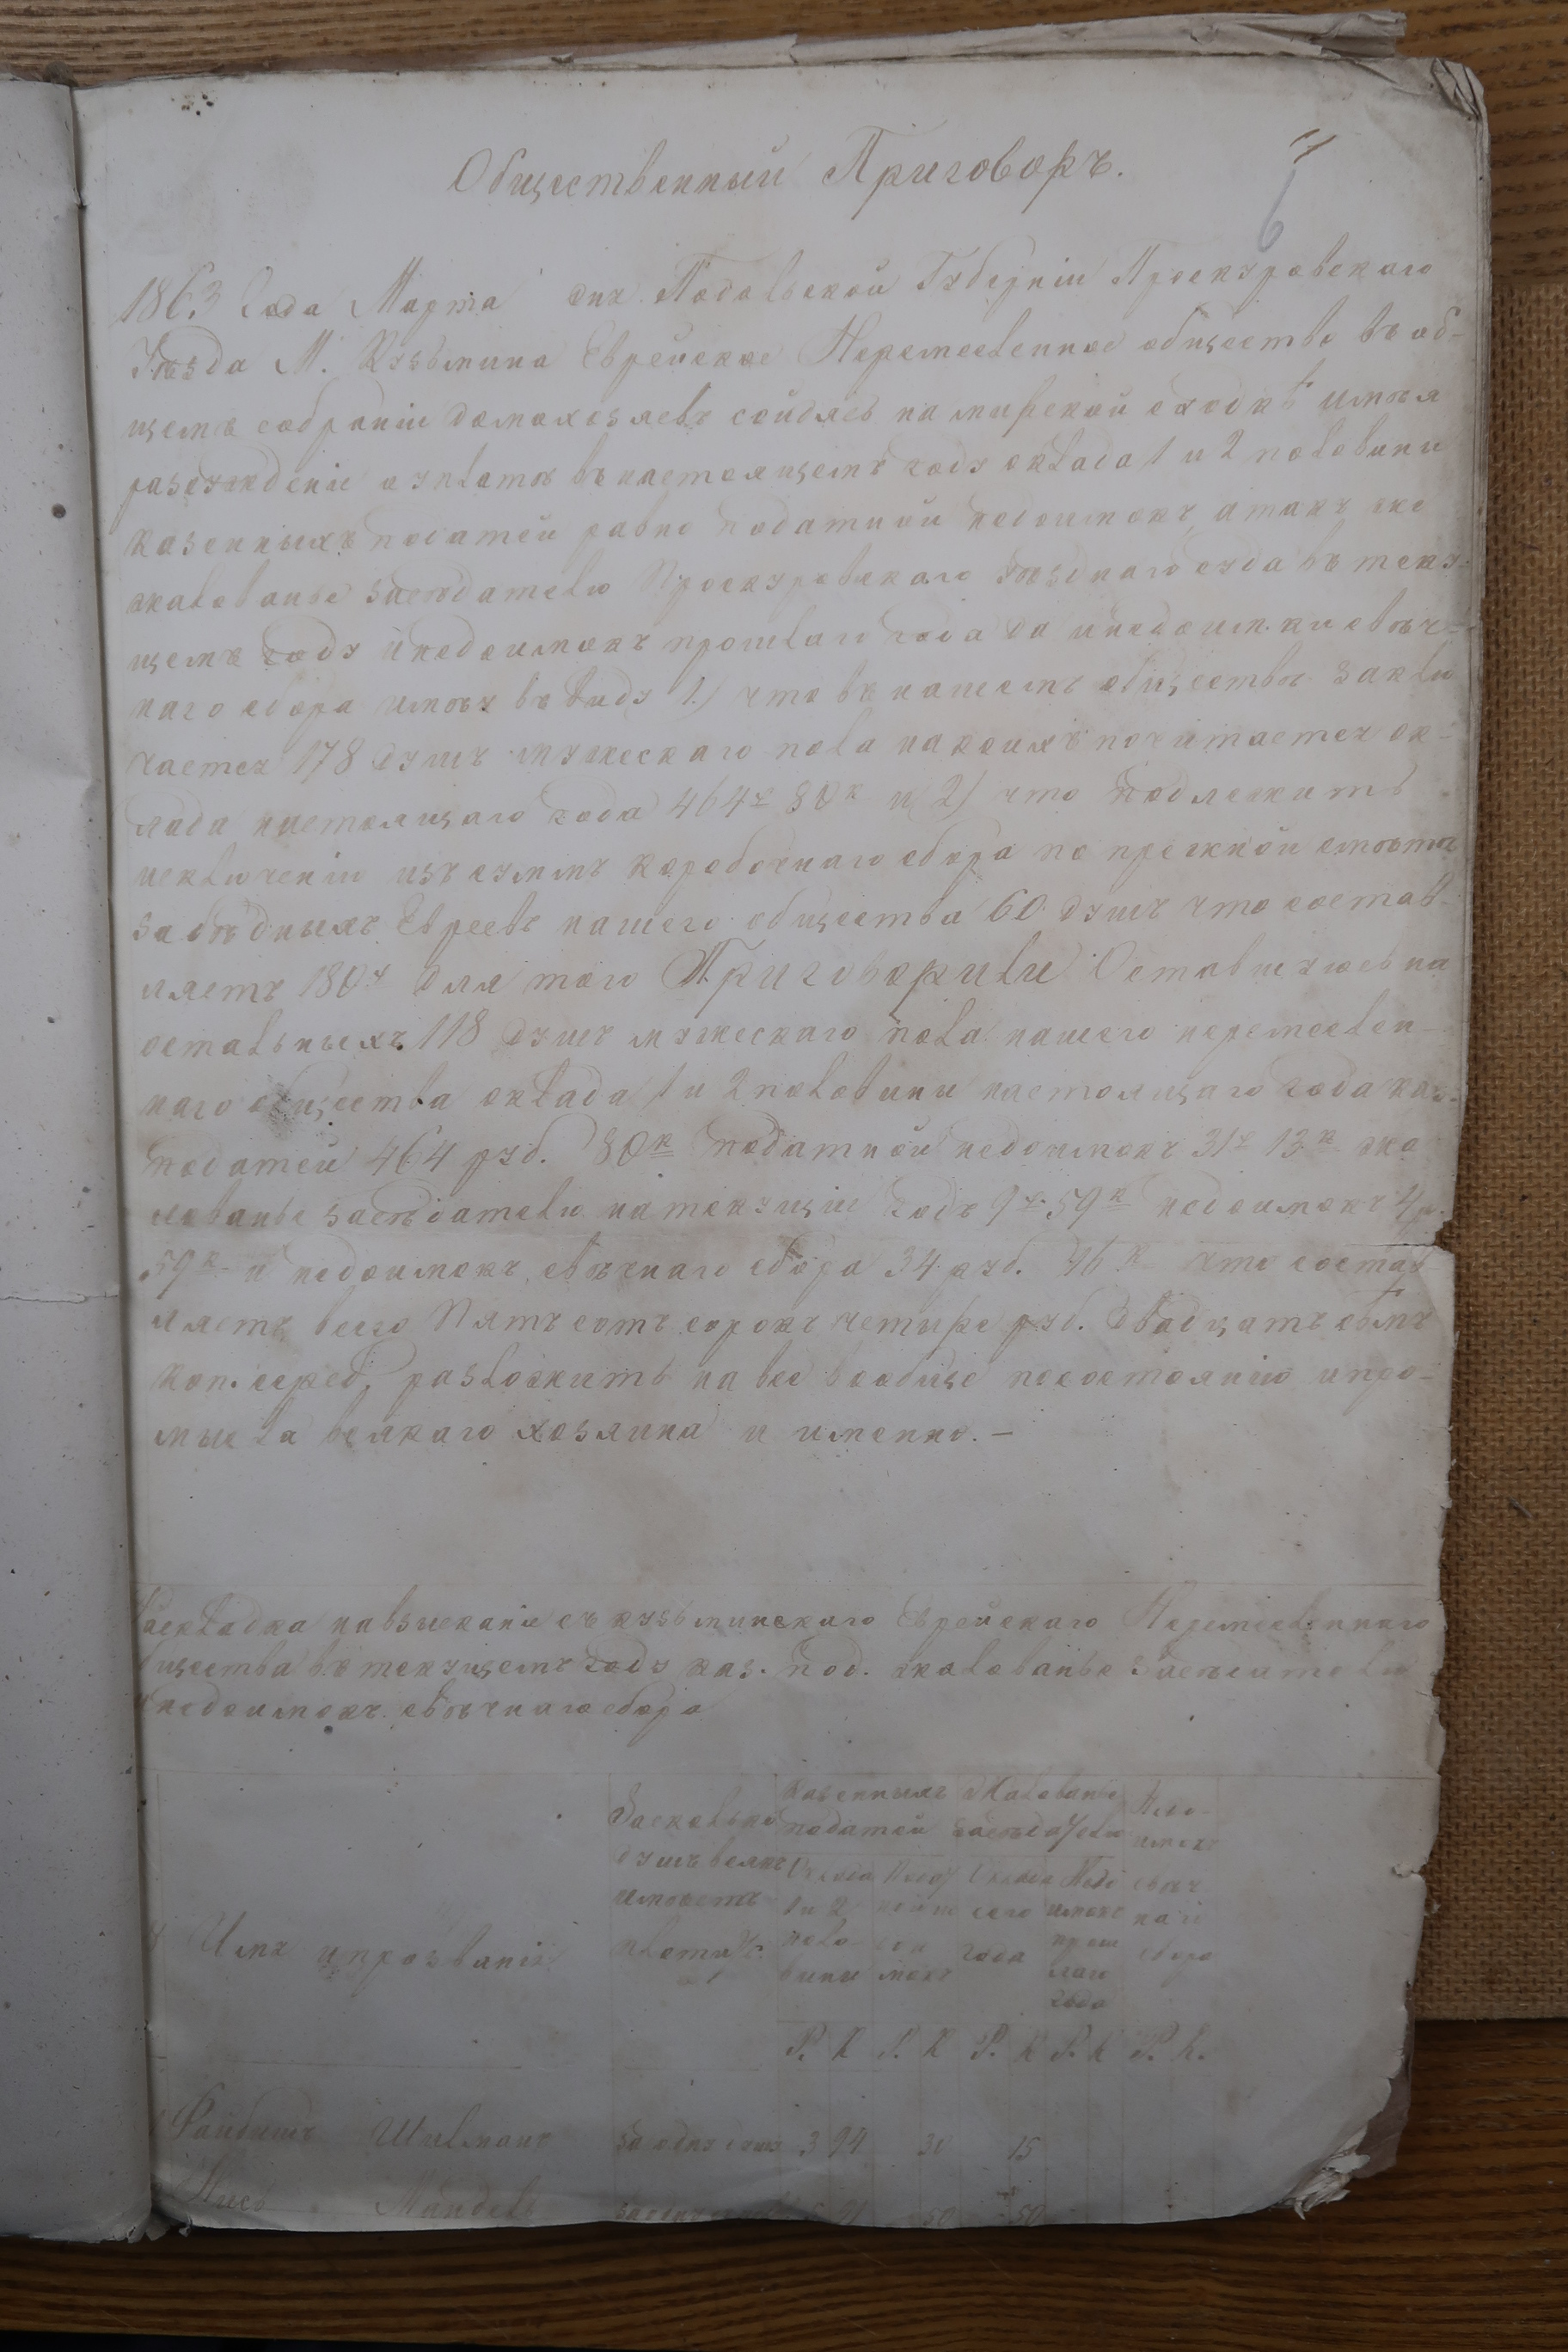 Общественный Приговоръ.
1863 Года Марта дня Подольской Губерніи Проскуровскаго
Уѣзда М. Кузьмина Еврейское Неремесленное общество въ об-
щемъ собраніи домохозяевъ сойдясь на мирской сходкѣ имѣя
разсужденіе о уплатѣ въ настоящемъ году оклада 1 и 2 половини
казенныхъ податей равно податной недоимокъ а такъ же
жалованье засѣдателю Проскуровскаго Уѣзднаго суда въ теку-
щемъ году и недоимокъ прошлаго года да и недоимки свѣч-
наго сбора имѣя въ виду 1.) что въ нашемъ обществѣ заклю
чается 178 душъ мужескаго пола на коихъ почитается ок-
лада настоящаго года 464 р 80 к и 2) что подлежитъ
исключенію изъ суммъ коробочнаго сбора по прежней смѣтѣ
за бѣдныхъ Евреевъ нашего общества 60 душъ что состав-
ляетъ 180 р для того Приговорили Оставшуюсь на
остальныхъ 118 душъ мужескаго пола нашего неремеслен-
наго общества оклада 1 и 2 половини настоящаго года каз-
податей 464 руб. 80 к податной недоимокъ 31 р 13 к жа
лованье засѣдателю на текущій годъ 9 р. 59 к недоимокъ 4 р.
59 к и недоимокъ свѣчнаго сбора 34 руб. 46 к что состав
ляетъ всего Пятьсотъ сорокъ четыре руб. двадцать семъ
коп. сереб. разложить на все вообще по состоянію и про-
мысла всякаго хозяина и именно. —
Раскладка на взысканіе съ кузьминскаго Еврейскаго Неремесленнаго
щества въ текущемъ году каз. под. жалованье Засѣдателю
и недоимокъ свѣчнаго сбора
Имя и прозваніе
За сколько
душъ всякъ
имѣетъ
платить.
Казенныхъ
податей
Оклада
1 и 2
поло-
вини
Жалованье
засѣдателю
Оклада
сего
года
Недо
имокъ
прош
лаго
года
Недо-
имокъ
свѣч
наго
сбора
Р. К Р. К Р. К Р. К Р. К.
Файвишъ Шильманъ за одну душу 3 94 30 15
Мандель